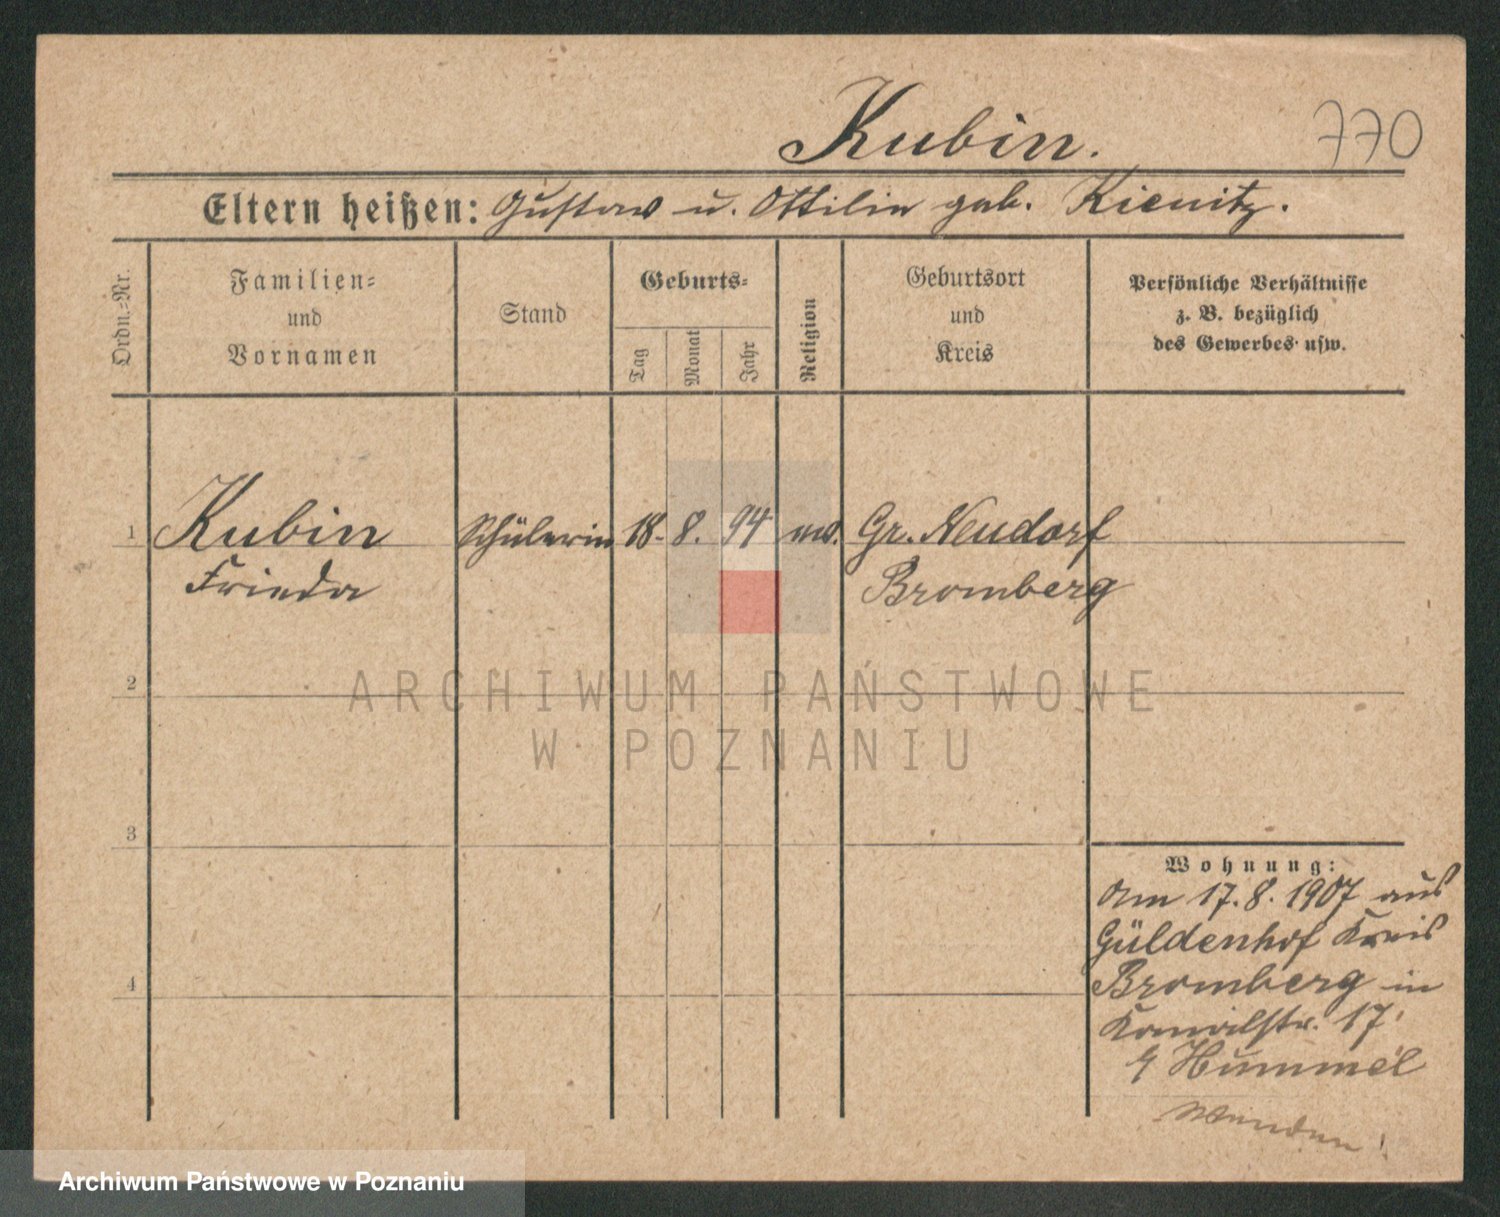 Kubin.
770
Eltern heißen: Gustav u. Ottilie geb. Kienitz.
Ordn.-Nr.
Familien-
und
Vornamen
Stand
Geburts-
Tag
Monat
Jahr
Religion
Geburtsort
und
Kreis
Persönliche Verhältnisse
z. B. bezüglich
des Gewerbes usw.
1 Kubin Schülerin 18. 8. 94 ev. Gr. Neudorf
Frieda Bromberg
2
3
4
Wohnung:
Am 17. 8. 1907 aus
Güldenhof Kreis
Bromberg in
Kanalstr. 17
Hummel
Wenden!
ARCHIWUM PAŃSTWOWE
W POZNANIU
Archiwum Państwowe w Poznaniu